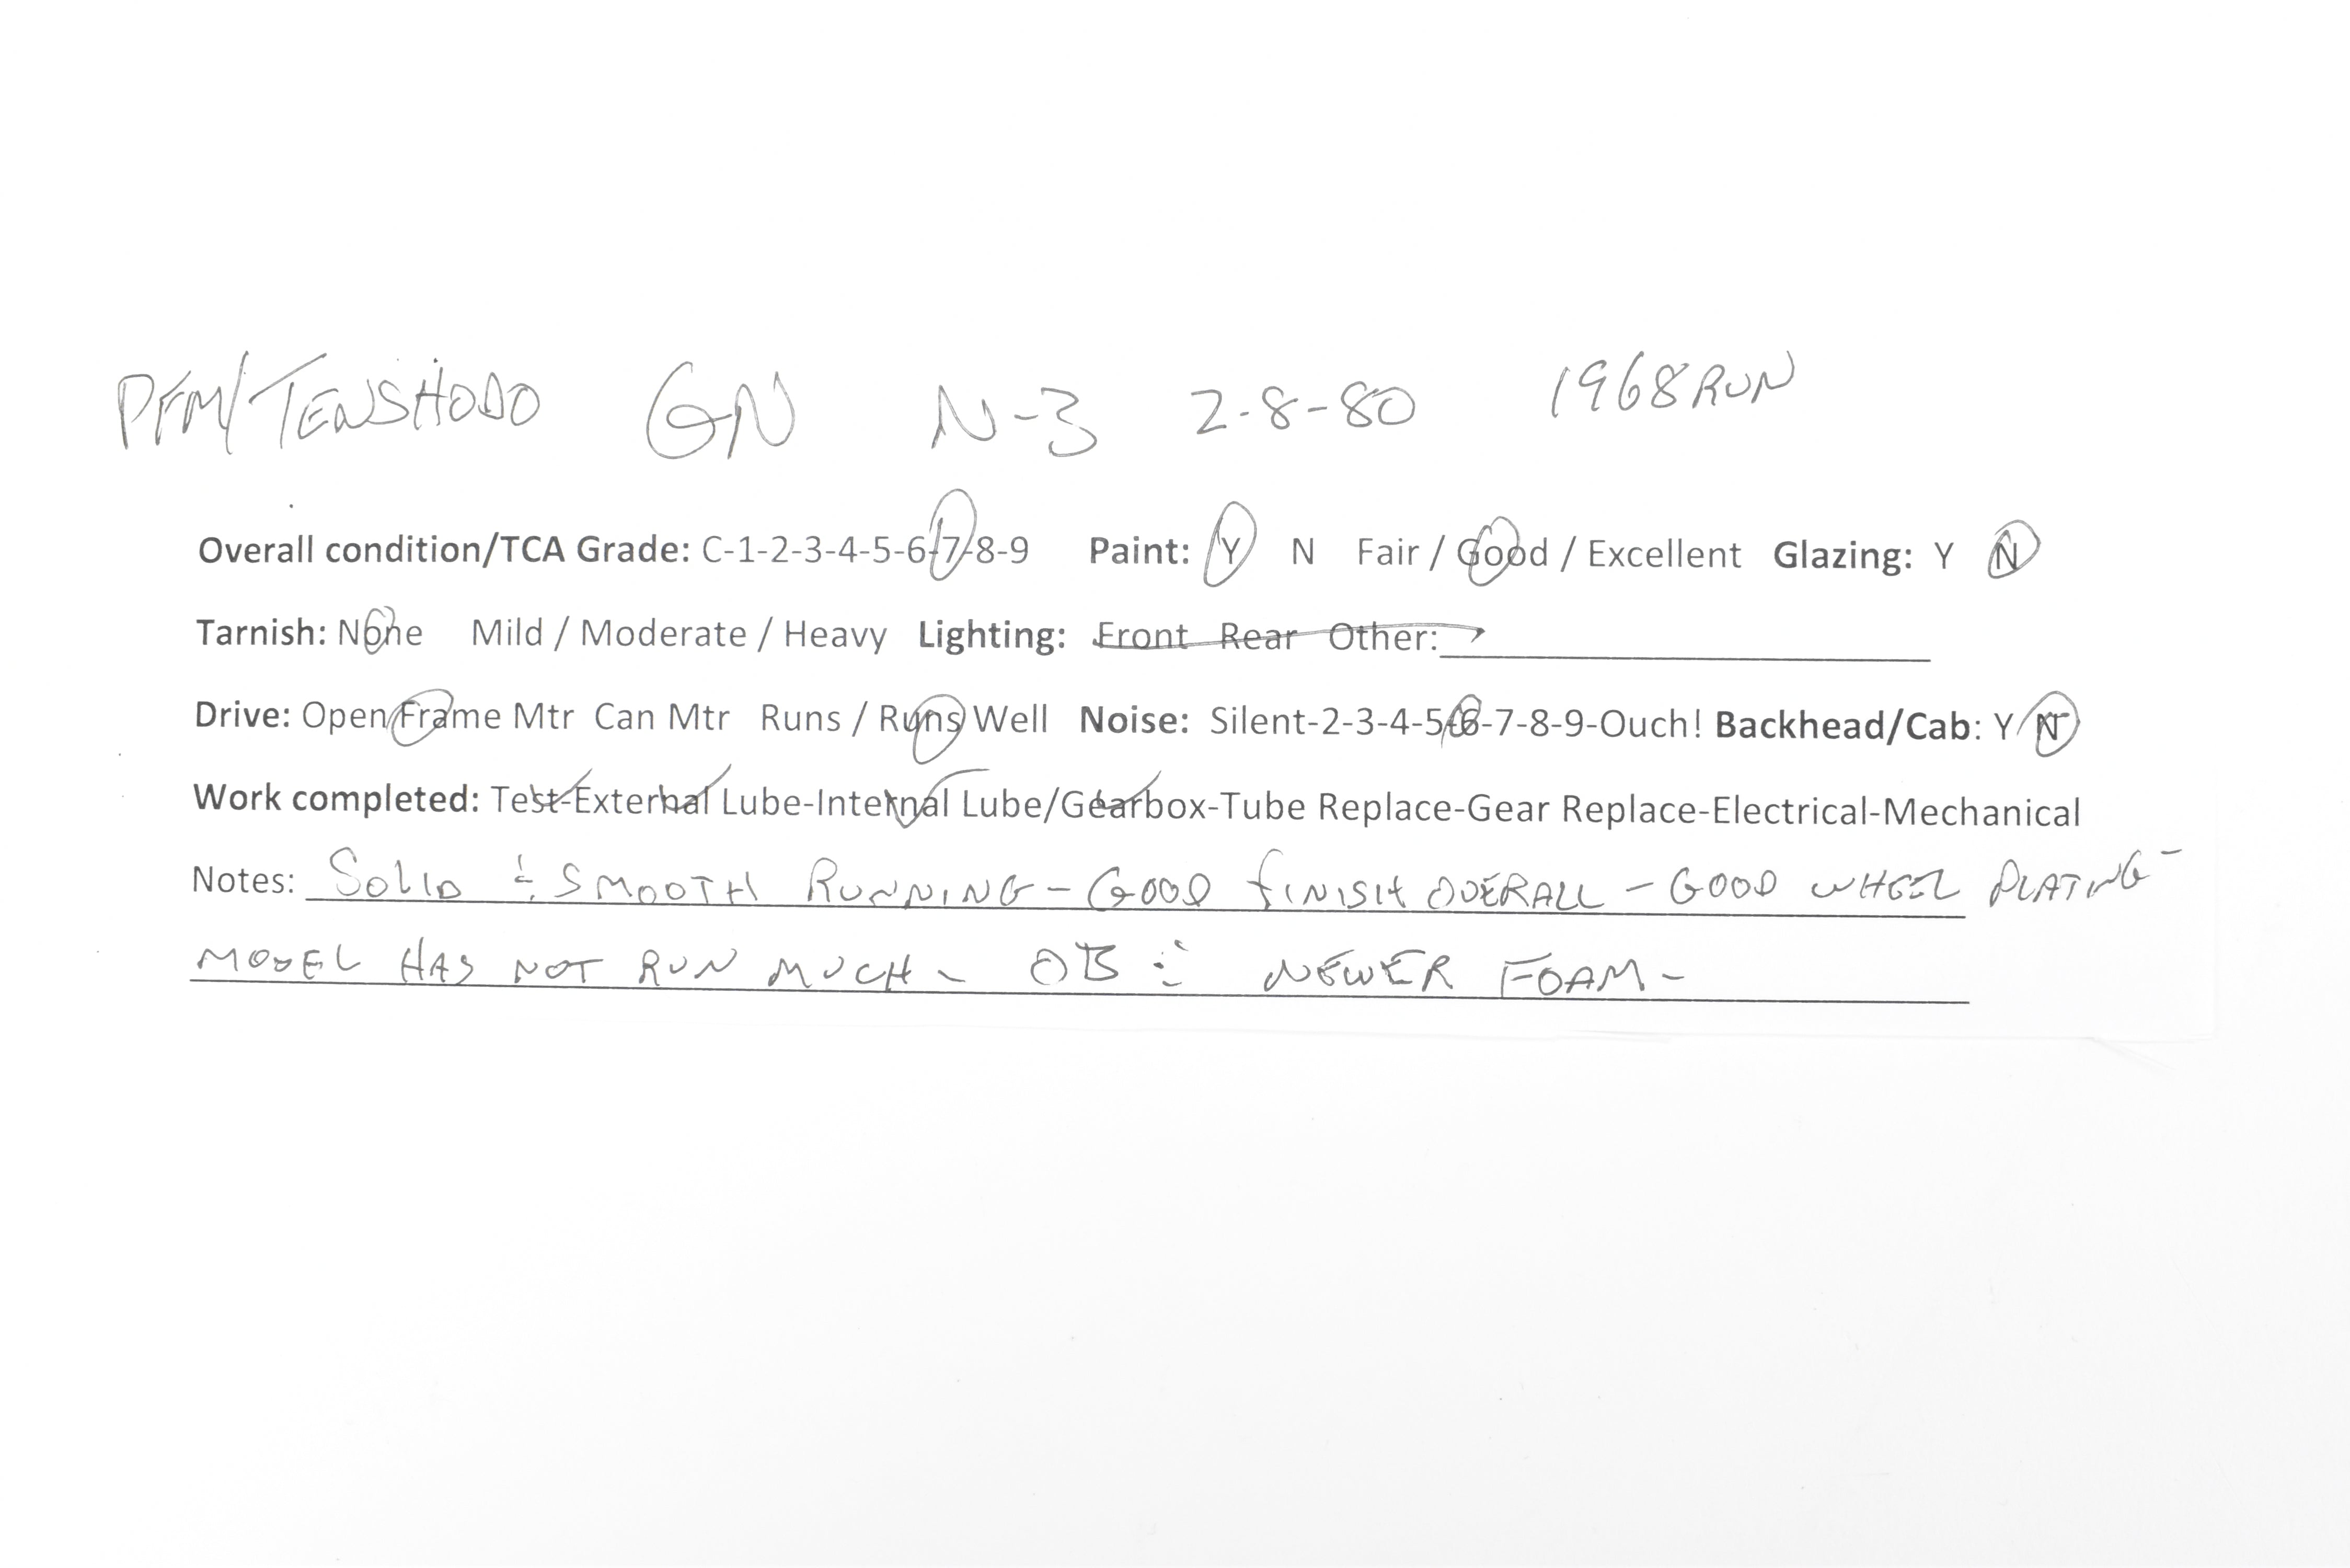 PFM/TENSHODO GN N-3 2-8-80 1968 RUN
Overall condition/TCA Grade: C-1-2-3-4-5-6-7-8-9 Paint: Y N Fair / Good / Excellent Glazing: Y N
Tarnish: None Mild / Moderate / Heavy Lighting: Front Rear Other:
Drive: Open Frame Mtr Can Mtr Runs / Runs Well Noise: Silent-2-3-4-5-6-7-8-9-Ouch! Backhead/Cab: Y N
Work completed: Test-External Lube-Internal Lube/Gearbox-Tube Replace-Gear Replace-Electrical-Mechanical
Notes: SOLID & SMOOTH RUNNING - GOOD FINISH OVERALL - GOOD WHEEL PLATING -
MODEL HAS NOT RUN MUCH - OB & NEWER FOAM -